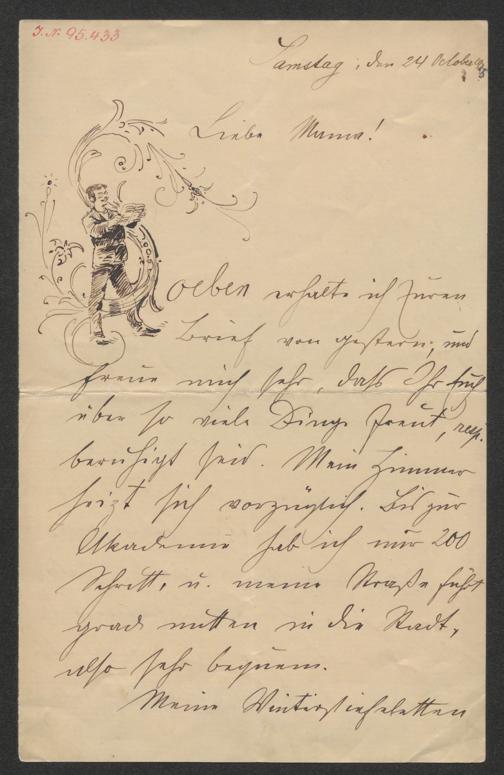 J. N. 95.433
Samstag, den 24 October
Liebe Mama!
Soeben erhalte ich Euren
Brief von gestern, und
freue mich sehr, daß Ihr Euch
über so viele Dinge freut, resp.
beruhigt seid. Mein Zimmer
heizt sich vorzüglich. Bis zur
Akademie hab ich nur 200
Schritt, u. meine Straße führt
grad mitten in die Stadt,
also sehr bequem.
Meine Winterstiefeletten